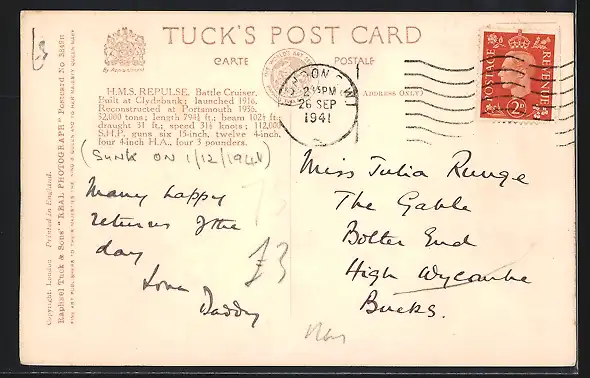 TUCK'S POST CARD
CARTE POSTALE
By Appointment
(ADDRESS ONLY)
H.M.S. REPULSE. Battle Cruiser.
Built at Clydebank; launched 1916.
Reconstructed at Portsmouth 1936.
32,000 tons; length 794½ ft.; beam 102½ ft.;
draught 31 ft.; speed 31½ knots; 112,000
S.H.P. guns six 15-inch, twelve 4-inch,
four 4-inch H.A., four 3 pounders.
(SUNK ON 1/12/1941)
Many happy
returns of the
day
Love
Daddy
£3
LONDON S.W.1
2 15 PM
26 SEP
1941
POSTAGE REVENUE
2D
Miss Julia Runge
The Gable
Bolter End
High Wycombe
Bucks.
Copyright. London Printed in England.
Raphael Tuck & Sons' "REAL PHOTOGRAPH" Postcard No. 3849
FINE ART PUBLISHERS TO THEIR MAJESTIES THE KING & QUEEN AND TO HER MAJESTY QUEEN MARY